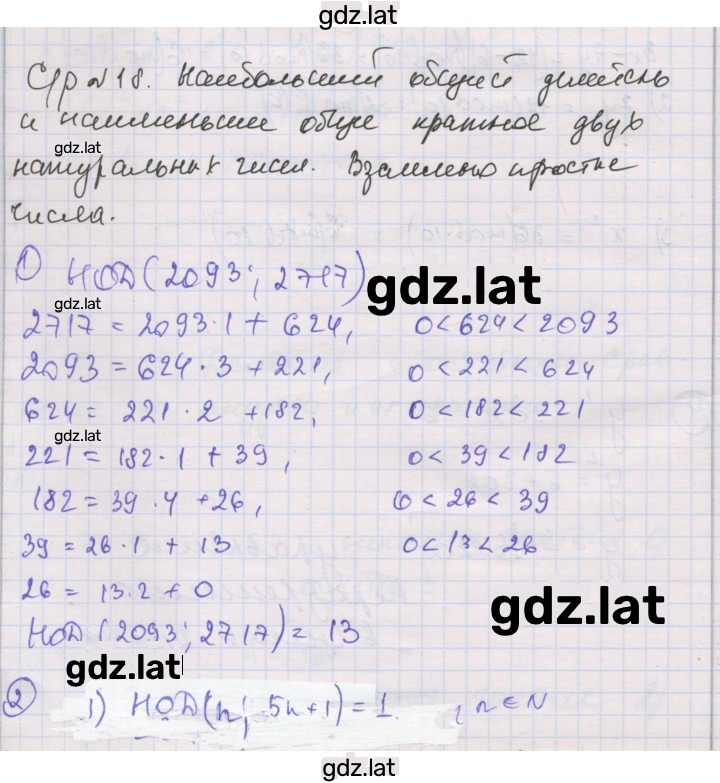 gdz.lat
Ср №18. Наибольший общий делитель
и наименьшее общее кратное двух
gdz.lat
натуральных чисел. Взаимно простые
числа.
1) НОД(2093; 2717)
gdz.lat
2717 = 2093·1 + 624, 0<624<2093
2093 = 624·3 + 221, 0<221<624
624 = 221·2 +182, 0<182<221
gdz.lat
221 = 182·1 + 39, 0<39<182
182 = 39·4 +26, 0<26<39
39 = 26·1 + 13 0<13<26
26 = 13·2 + 0
gdz.lat
НОД(2093; 2717) = 13
gdz.lat
2) 1) НОД(n; 5n+1) = 1. , n∈N
gdz.lat